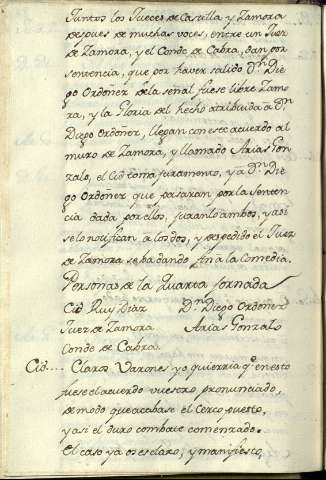 Juntos los Jueces de Castilla y Zamora
despues de muchas voces, entre un Juez
de Zamora, y el Conde de Cabra, dan por
sentencia, que por haver salido Dn. Die
go Ordoñez de la señal fuese libre Zamo
ra, y la Gloria del hecho atribuida a Dn
Diego Ordoñez, llegan con este acuerdo al
muro de Zamora, y llamado Arias Gon
zalo, el Cid toma juramento, y a Dn. Die
go Ordoñez que pasaran por la Senten
cia dada por ellos, juranlo ambos, y asi
se lo notifican â los dos, y despedido el Juez
de Zamora se ba dando fin â la Comedia.
Personas de la Quarta Jornada
Cid Ruy Diaz Dn. Diego Ordoñez
Juez de Zamora Arias Gonzalo
Conde de Cabra
Cid.... Claros Varones yo quierria qe. en esto
fuese el acuerdo vuestro, pronunciado,
de modo que acabase el Cerco puesto,
y asi el duro combate comenzado.
El caso ya os es claro, y manifiesto,